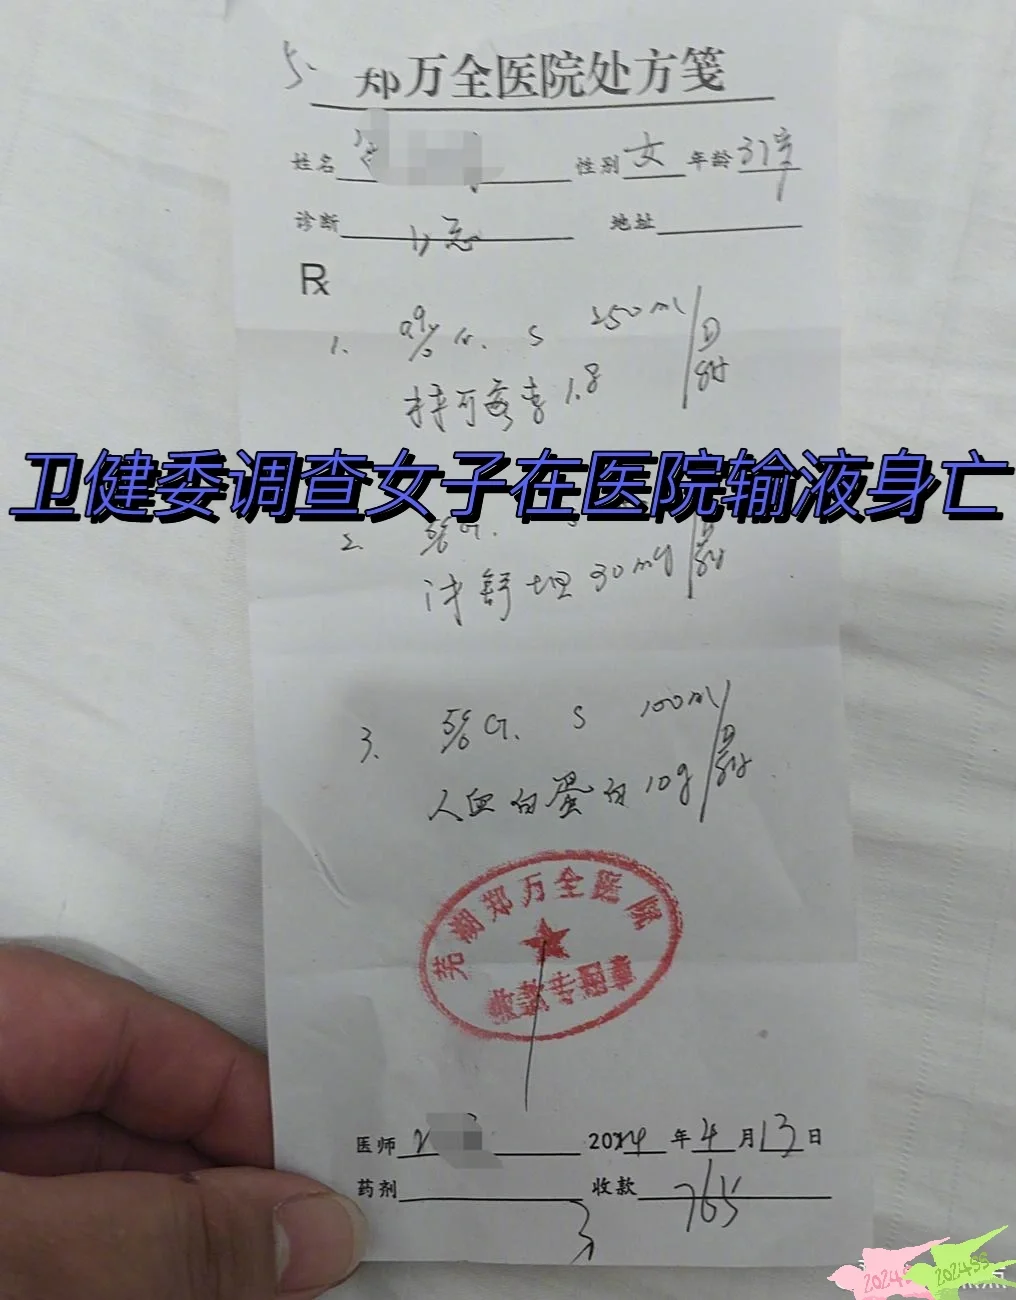 郑万全医院处方笺
姓名 性别 女 年龄 31岁
诊断 地址
Rx
1. 0.9% N. S 250ml
1.8
卫健委调查女子在医院输液身亡
2. 5% G.
30mg
3. 5% G. S 100ml
人血白蛋白 10g
芜湖郑万全医院
收款专用章
医师 2024 年 4 月 13 日
药剂 收款 765